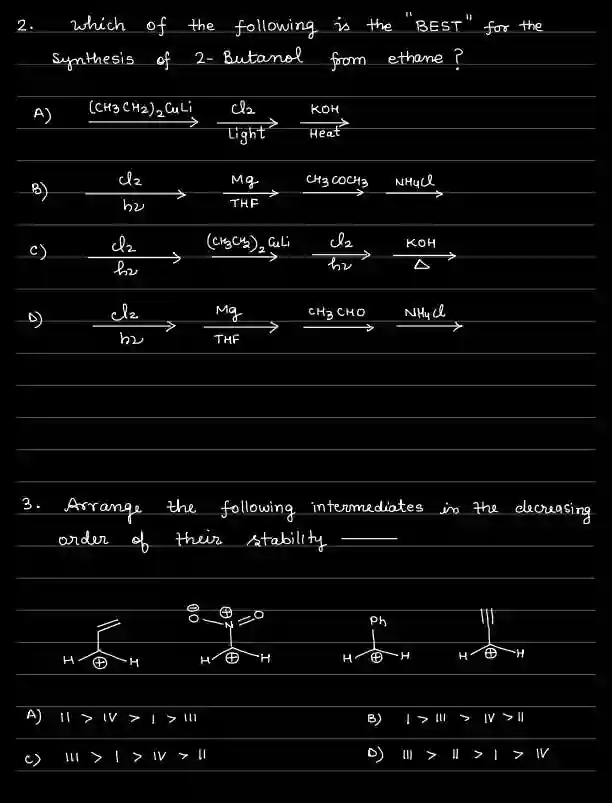 2. Which of the following is the "BEST" for the
Synthesis of 2-Butanol from ethane?
A) (CH3CH2)2CuLi Cl2 Light KOH Heat
B) Cl2 hν Mg THF CH3COCH3 NH4Cl
C) Cl2 hν (CH3CH2)2CuLi Cl2 hν KOH Δ
D) Cl2 hν Mg THF CH3CHO NH4Cl
3. Arrange the following intermediates in the decreasing
order of their stability ——
⊖ O N ⊕ O Ph
H ⊕ H H ⊕ H H ⊕ H H ⊕ H
A) II > IV > I > III B) I > III > IV > II
C) III > I > IV > II D) III > II > I > IV